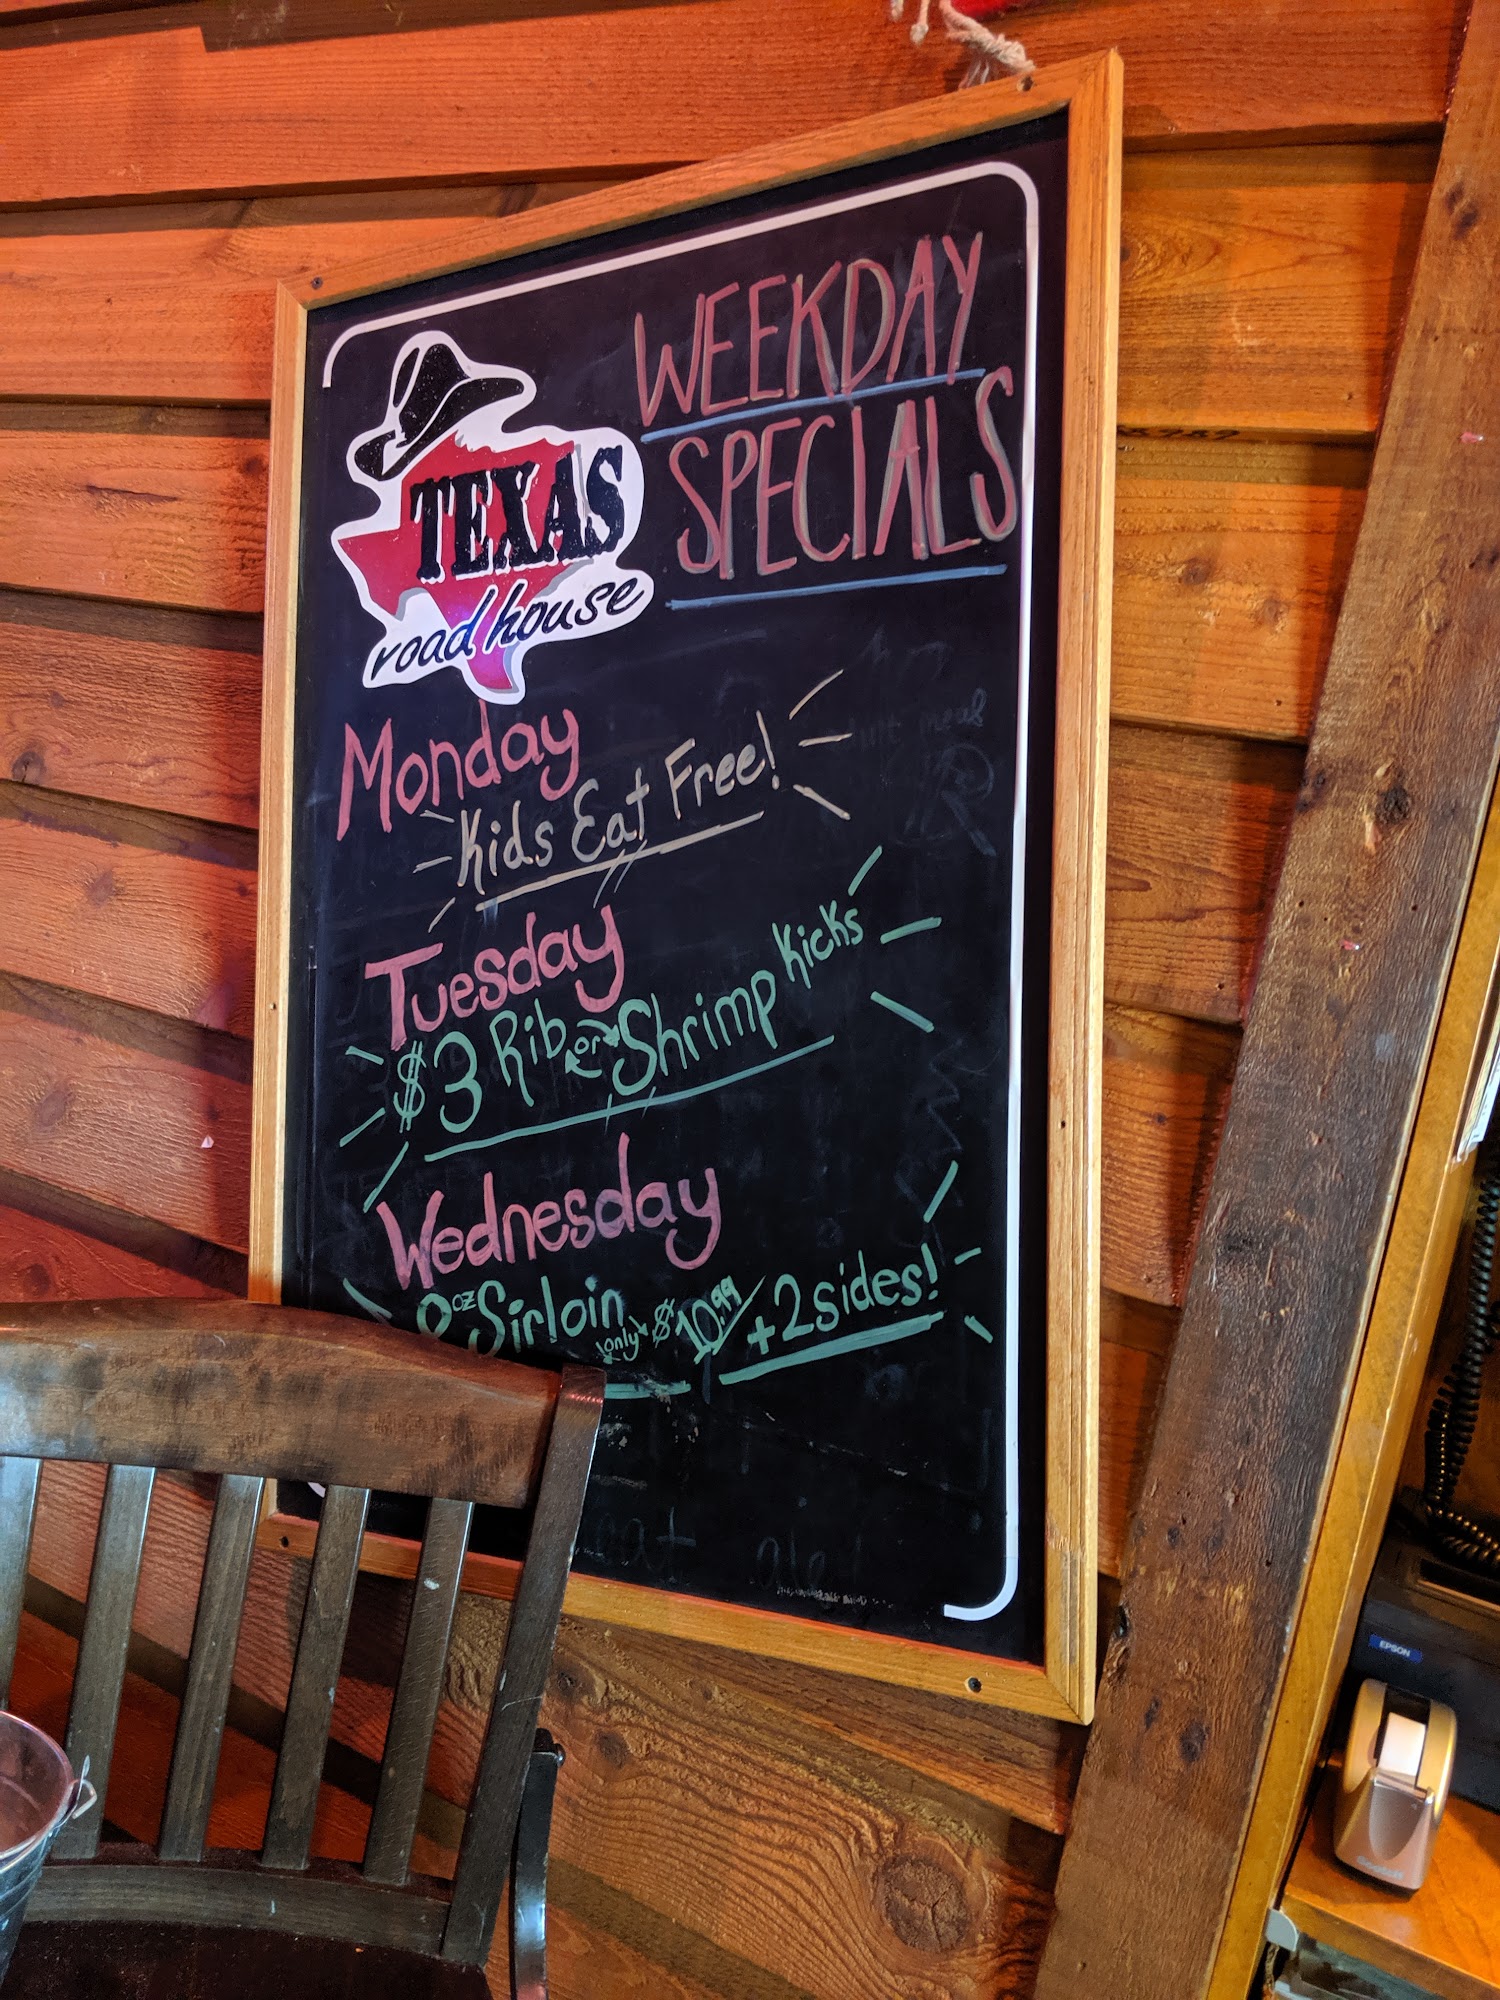 WEEKDAY
SPECIALS
TEXAS
roadhouse
Monday
Kids Eat Free!
Tuesday
$3 Rib or Shrimp Kicks
Wednesday
8oz Sirloin only $10.99 + 2 sides!
EPSON
Scotch